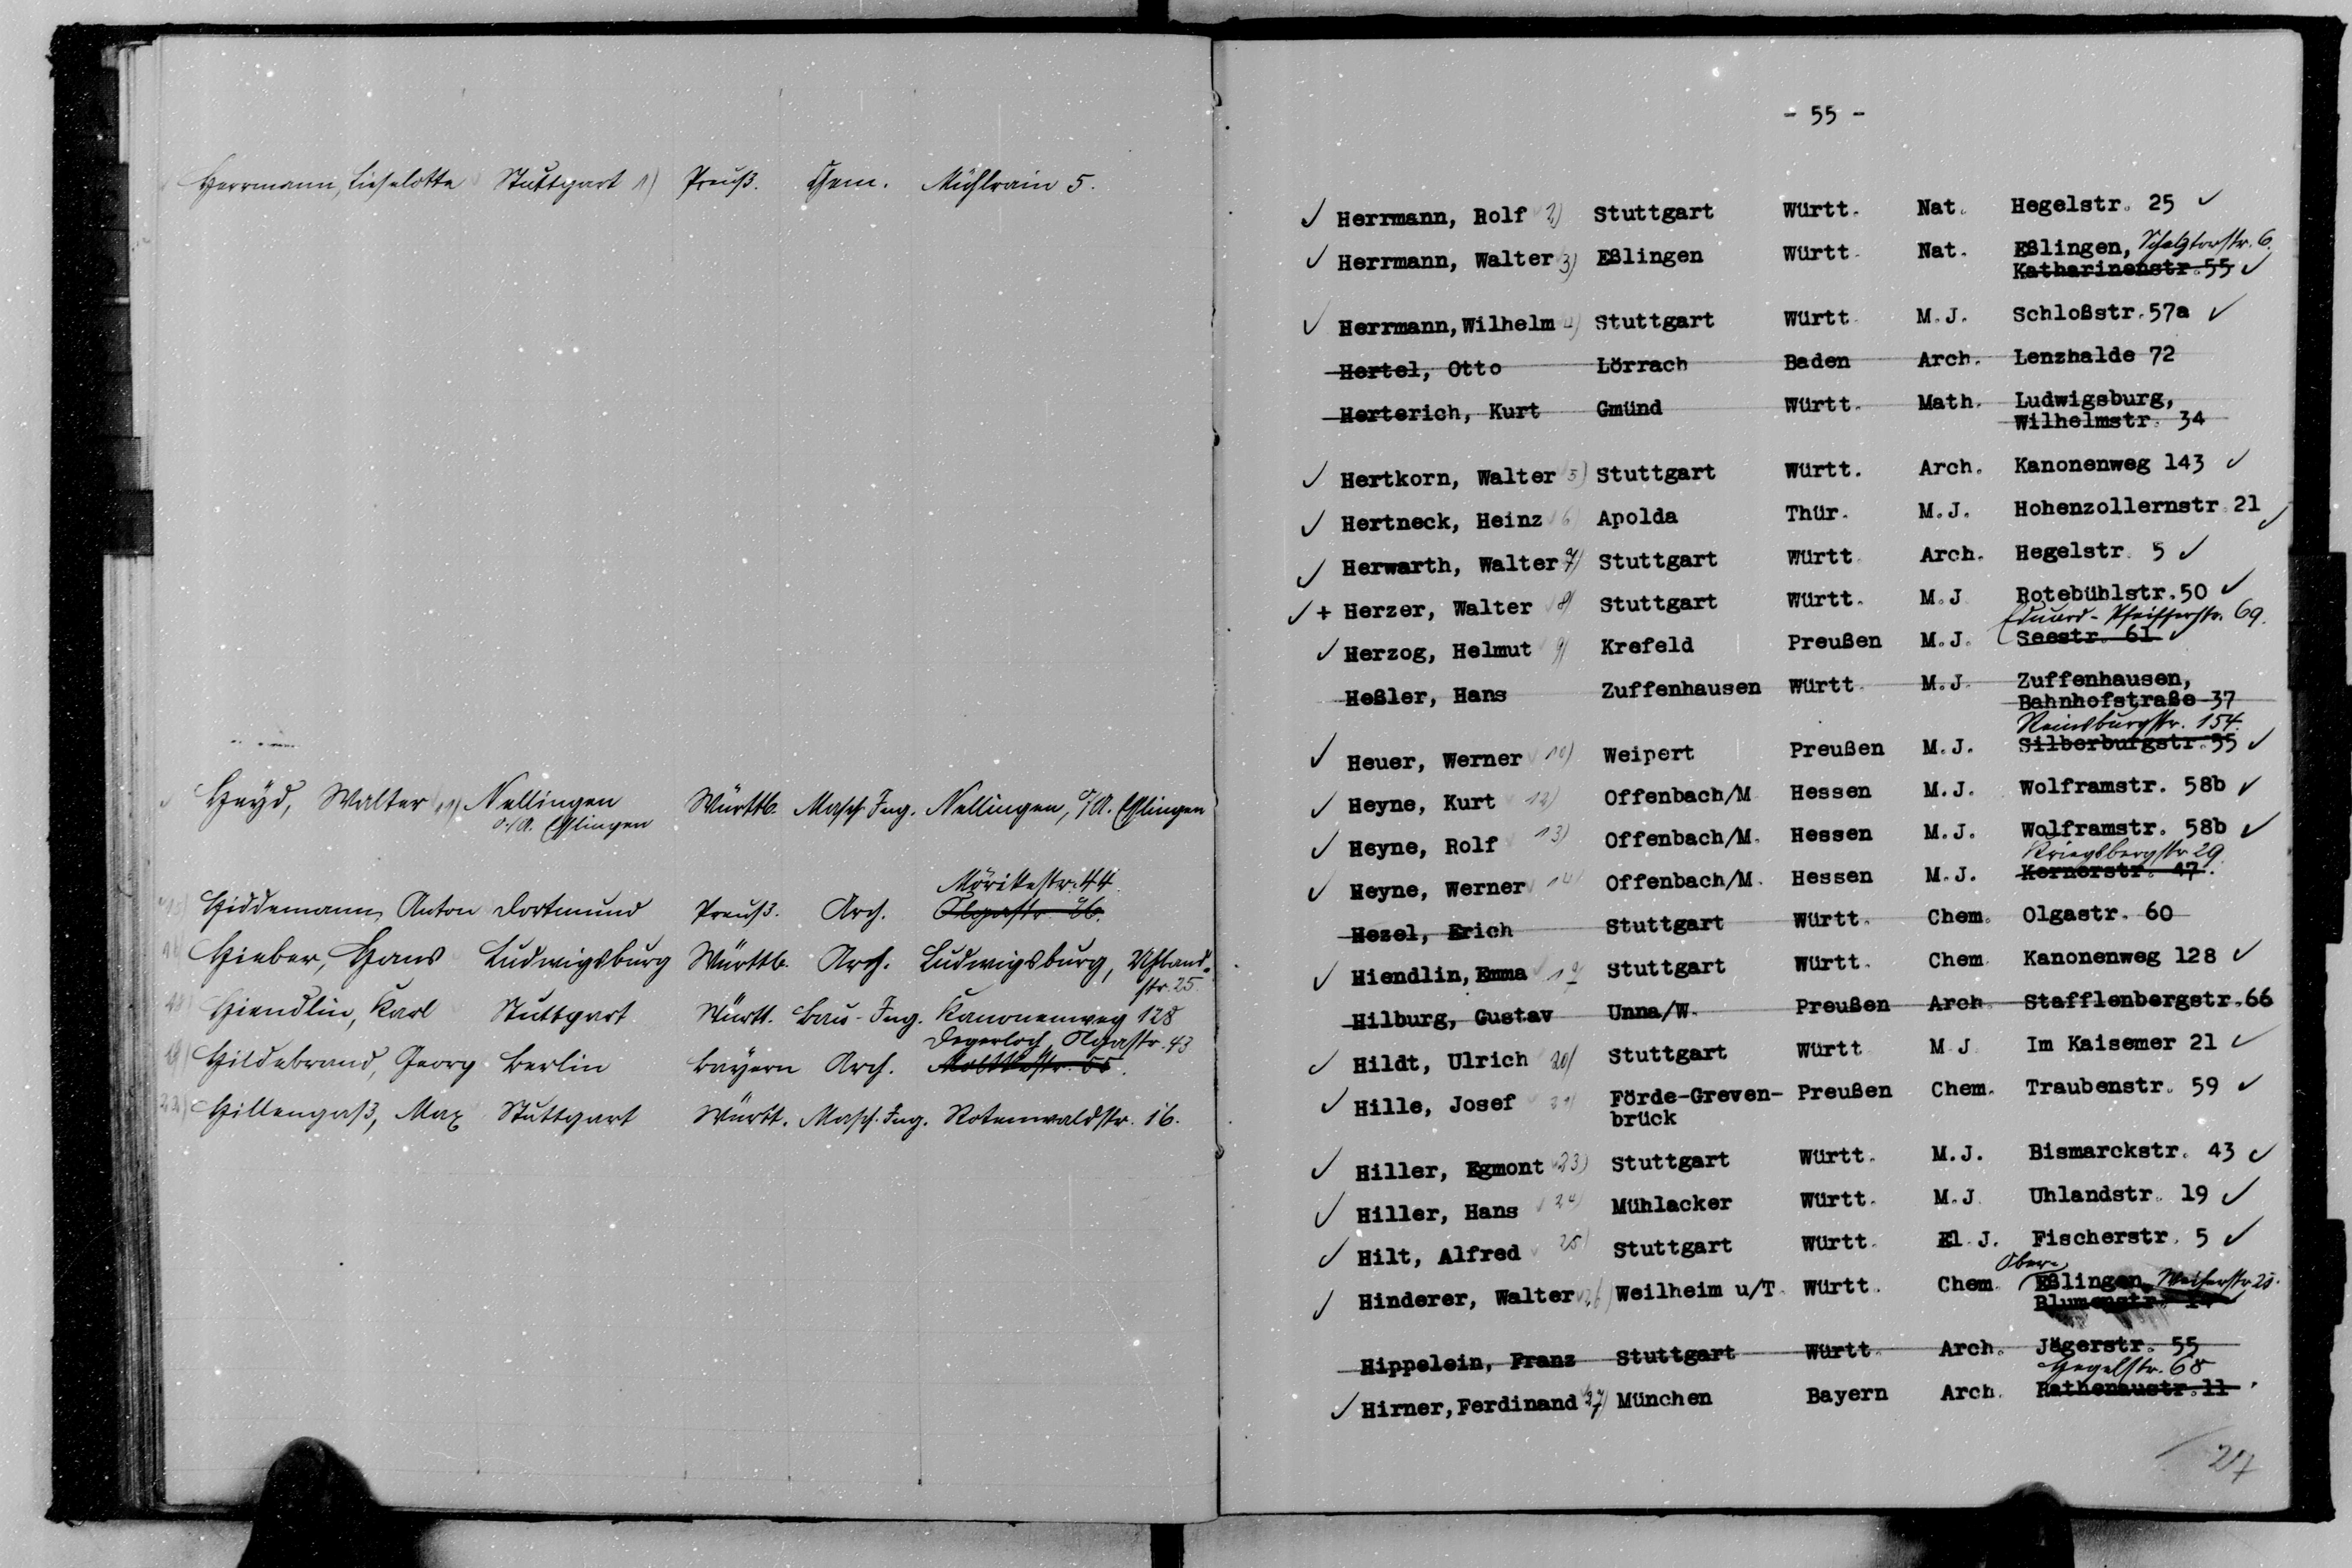 Herrmann, Lieselotte Stuttgart 1) Preuß. Chem. Mühlrain 5.
Heyd, Walter 11) Nellingen Württb. Masch. Ing. Nellingen, O/A. Eßlingen
O./A. Eßlingen
Mörikestr. 44.
15) Hiddemann Anton Dortmund Preuß. Arch. Olgastr. 26.
16) Hieber, Hans Ludwigsburg Württb. Arch. Ludwigsburg, Uhland-
str. 25.
Hiendlin, Karl Stuttgart Württ. Bau-Ing. Kanonenweg 128
Degerloch, Olgastr. 43
19) Hildebrand, Georg Berlin Bayern Arch. Moltkestr. 55.
22) Hillengaß, Max Stuttgart Württ. Masch. Ing. Rotenwaldstr. 16.
- 55 -
✓ Herrmann, Rolf 2) Stuttgart Württ. Nat. Hegelstr. 25 ✓
✓ Herrmann, Walter 3) Eßlingen Württ. Nat. Eßlingen, Schelztorstr. 6.
Katharinenstr. 55 ✓
✓ Herrmann, Wilhelm 4) Stuttgart Württ. M.J. Schloßstr. 57a ✓
Hertel, Otto Lörrach Baden Arch. Lenzhalde 72
Herterich, Kurt Gmünd Württ. Math. Ludwigsburg,
Wilhelmstr. 34
✓ Hertkorn, Walter 5) Stuttgart Württ. Arch. Kanonenweg 143 ✓
✓ Hertneck, Heinz 6) Apolda Thür. M.J. Hohenzollernstr. 21 ✓
✓ Herwarth, Walter 7) Stuttgart Württ. Arch. Hegelstr. 5 ✓
✓ + Herzer, Walter 8) Stuttgart Württ. M.J. Rotebühlstr. 50 ✓
Eduard-Pfeifferstr. 69.
✓ Herzog, Helmut 9) Krefeld Preußen M.J. Seestr. 61 ✓
Heßler, Hans Zuffenhausen Württ. M.J. Zuffenhausen,
Bahnhofstraße 37
Reinsburgstr. 154.
✓ Heuer, Werner 10) Weipert Preußen M.J. Silberburgstr. 55 ✓
✓ Heyne, Kurt 12) Offenbach/M Hessen M.J. Wolframstr. 58b ✓
✓ Heyne, Rolf 13) Offenbach/M. Hessen M.J. Wolframstr. 58b ✓
Kriegsbergstr. 29.
✓ Heyne, Werner 14) Offenbach/M. Hessen M.J. Kernerstr. 47.
Hezel, Erich Stuttgart Württ. Chem. Olgastr. 60
✓ Hiendlin, Emma 17 Stuttgart Württ. Chem. Kanonenweg 128 ✓
Hilburg, Gustav Unna/W. Preußen Arch. Stafflenbergstr. 66
✓ Hildt, Ulrich 20) Stuttgart Württ M J. Im Kaisemer 21 ✓
✓ Hille, Josef 21) Förde-Greven- Preußen Chem. Traubenstr. 59 ✓
brück
✓ Hiller, Egmont 23) Stuttgart Württ. M.J. Bismarckstr. 43 ✓
✓ Hiller, Hans 24) Mühlacker Württ. M.J. Uhlandstr. 19 ✓
✓ Hilt, Alfred 25) Stuttgart Württ. El.J. Fischerstr. 5 ✓
Ober-
✓ Hinderer, Walter 26) Weilheim u/T. Württ. Chem. Eßlingen,
Blumenstr.
Hippelein, Franz Stuttgart Württ. Arch. Jägerstr. 55
Hegelstr. 68
✓ Hirner, Ferdinand 27) München Bayern Arch. Rathenaustr. 11
27